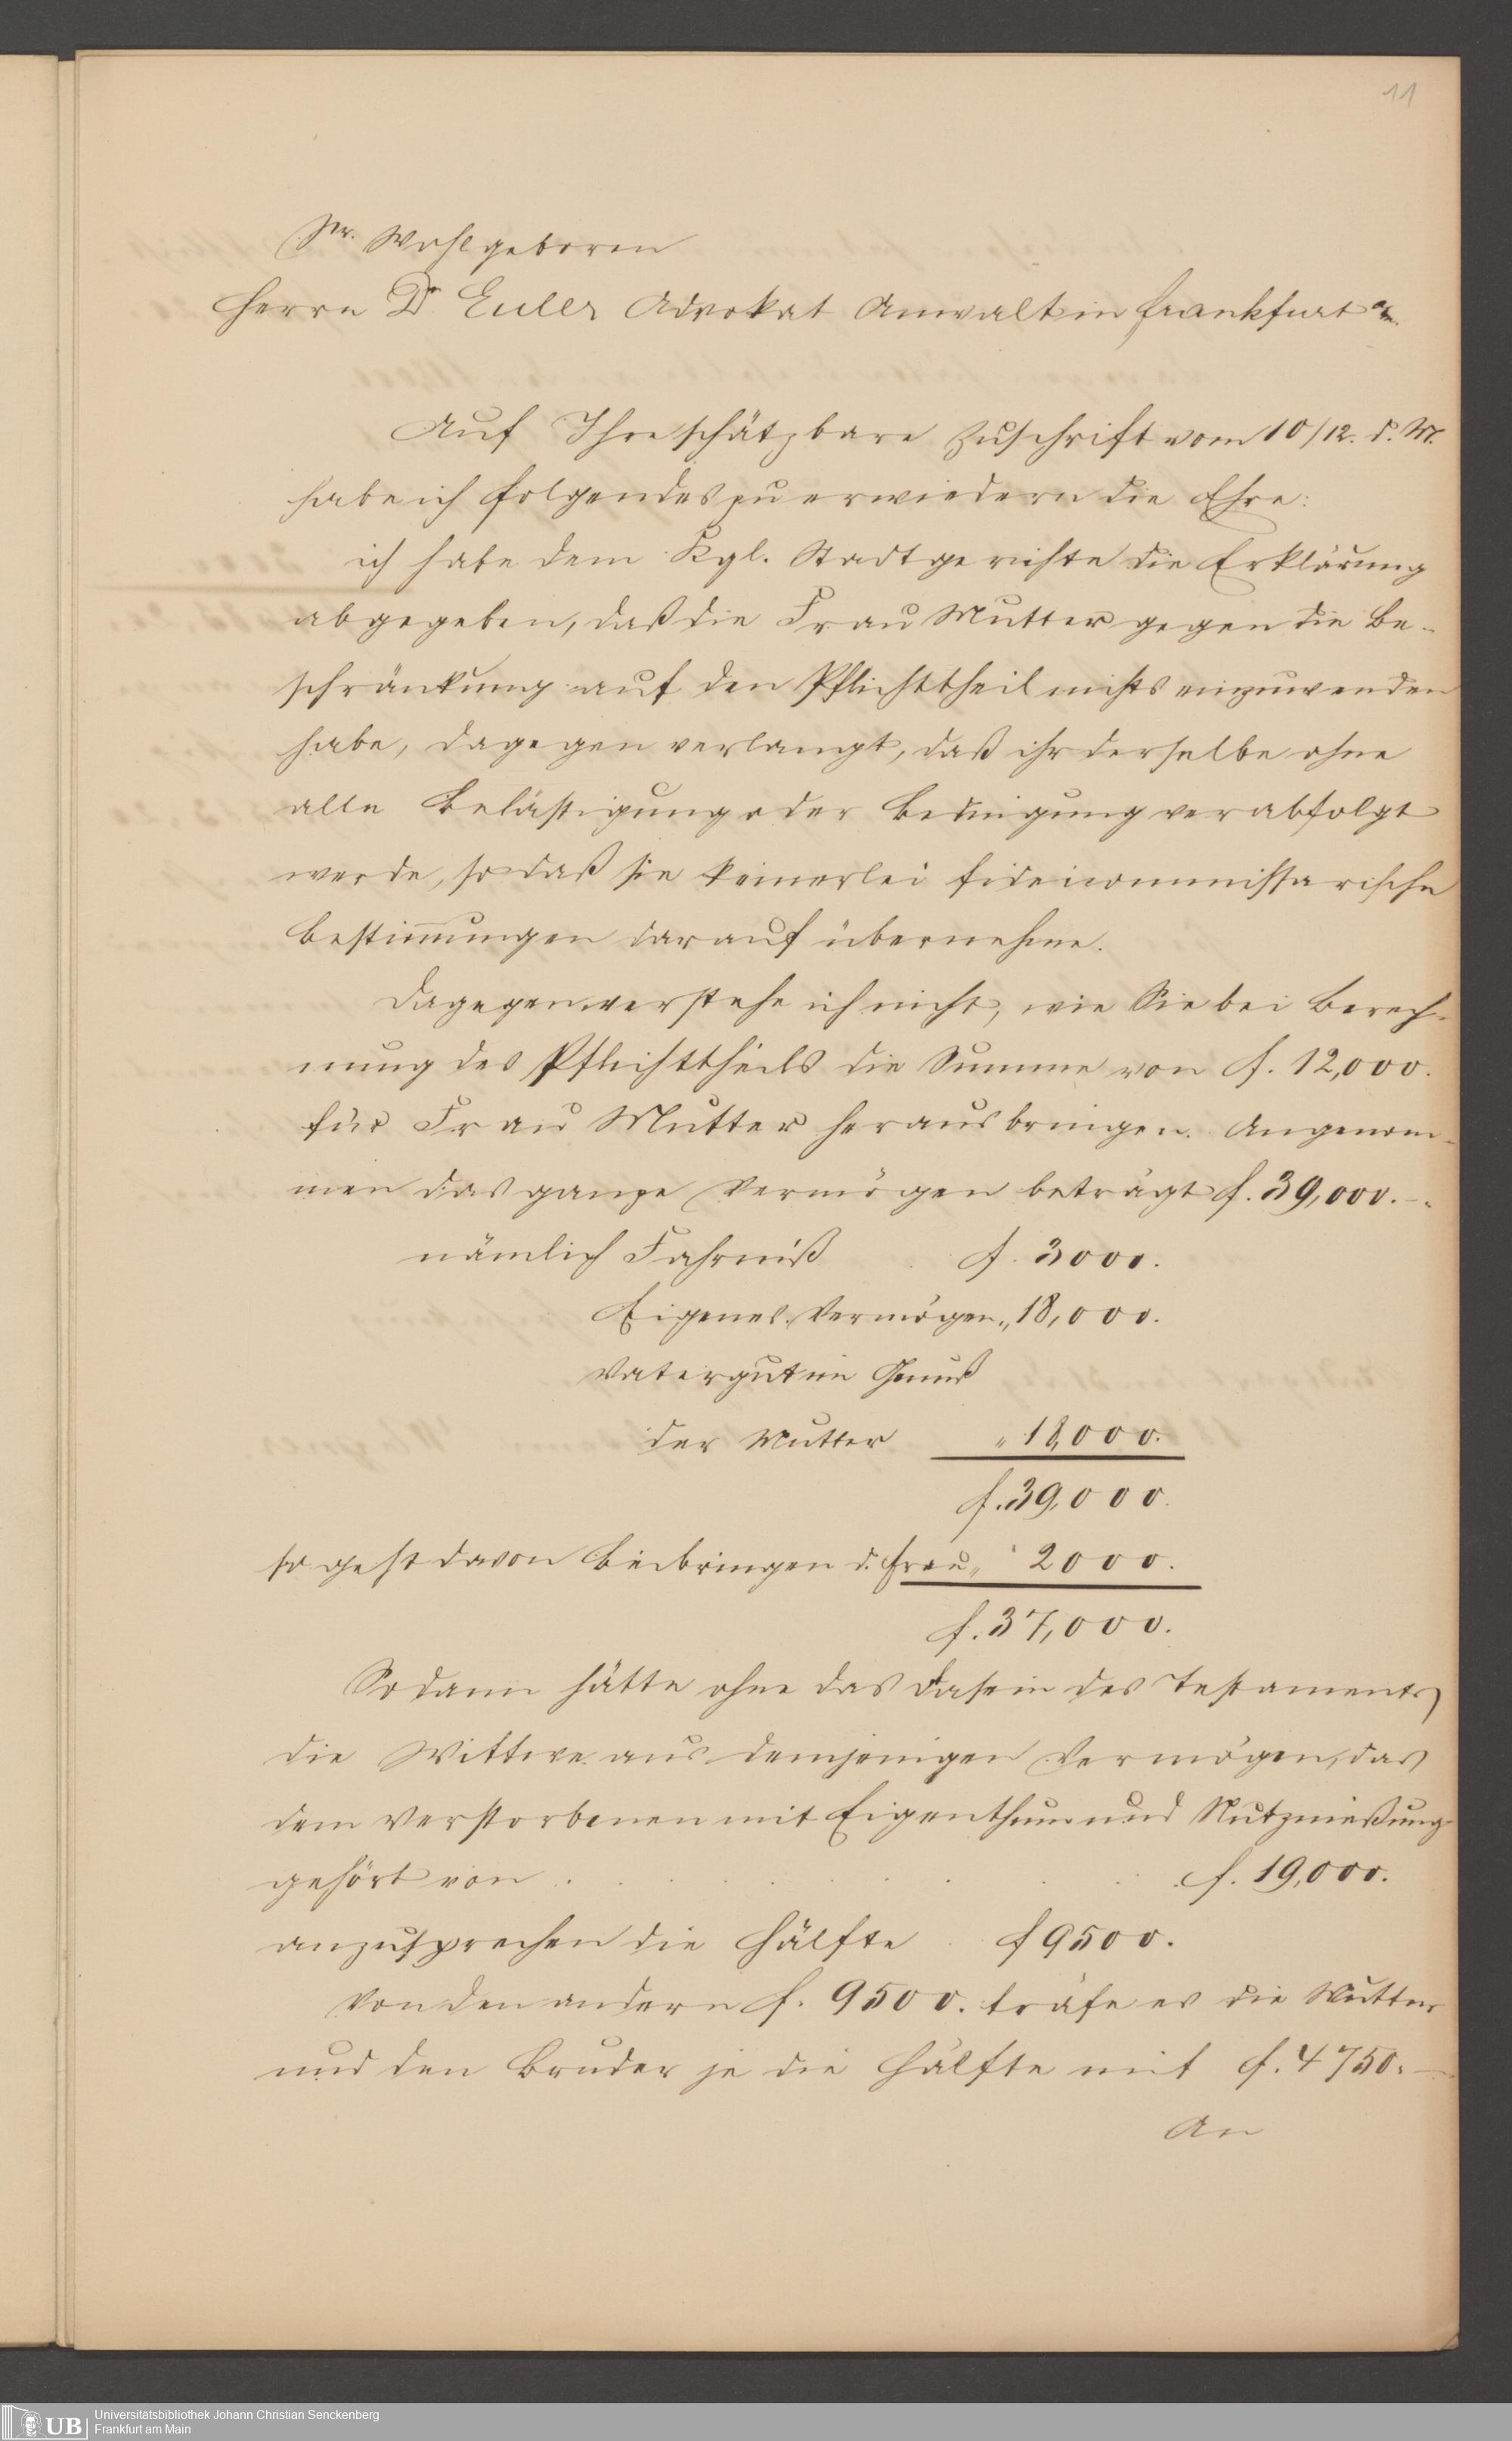 11
Sr. Wohlgeboren
Herrn Dr Euler Advokat Anwalt in Frankfurt a/M.
Auf Ihre schätzbare Zuschrift vom 10/12. d. M.
habe ich folgendes zu erwiedern die Ehre:
ich habe dem Kgl. Stadtgerichte die Erklärung
abgegeben, daß die Frau Mutter gegen die Be-
schränkung auf den Pflichttheil nichts einzuwenden
habe, dagegen verlangt, daß ihr derselbe ohne
alle Belästigung oder Bedingung verabfolgt
werde, so daß sie keinerlei fideicommissarische
Bestimmungen darauf übernehme.
Dagegen verstehe ich nicht, wie Sie bei Berech-
nung des Pflichttheils die Summe von f. 12,000.
für Frau Mutter herausbringen. Angenom-
men das ganze Vermögen beträgt f. 39,000.-.
nämlich Fahrniß f. 3000.
Eigenes Vermögen „ 18,000.
Vatergut im Genuß
der Mutter „ 18,000.
f. 39,000.
so geht davon Beibringen d. Frau „ 2000.
f. 37,000.
Sodann hätte ohne das Dasein des Testaments
die Wittwe aus demjenigen Vermögen, das
dem Verstorbenen mit Eigenthum und Nutznießung
gehört von . . . . . . . f. 19,000.
anzusprechen die Hälfte . f 9500.
Von den andern f. 9500. träfe es die Mutter
und den Bruder je die Hälfte mit f. 4750.-
An
UB
Universitätsbibliothek Johann Christian Senckenberg
Frankfurt am Main